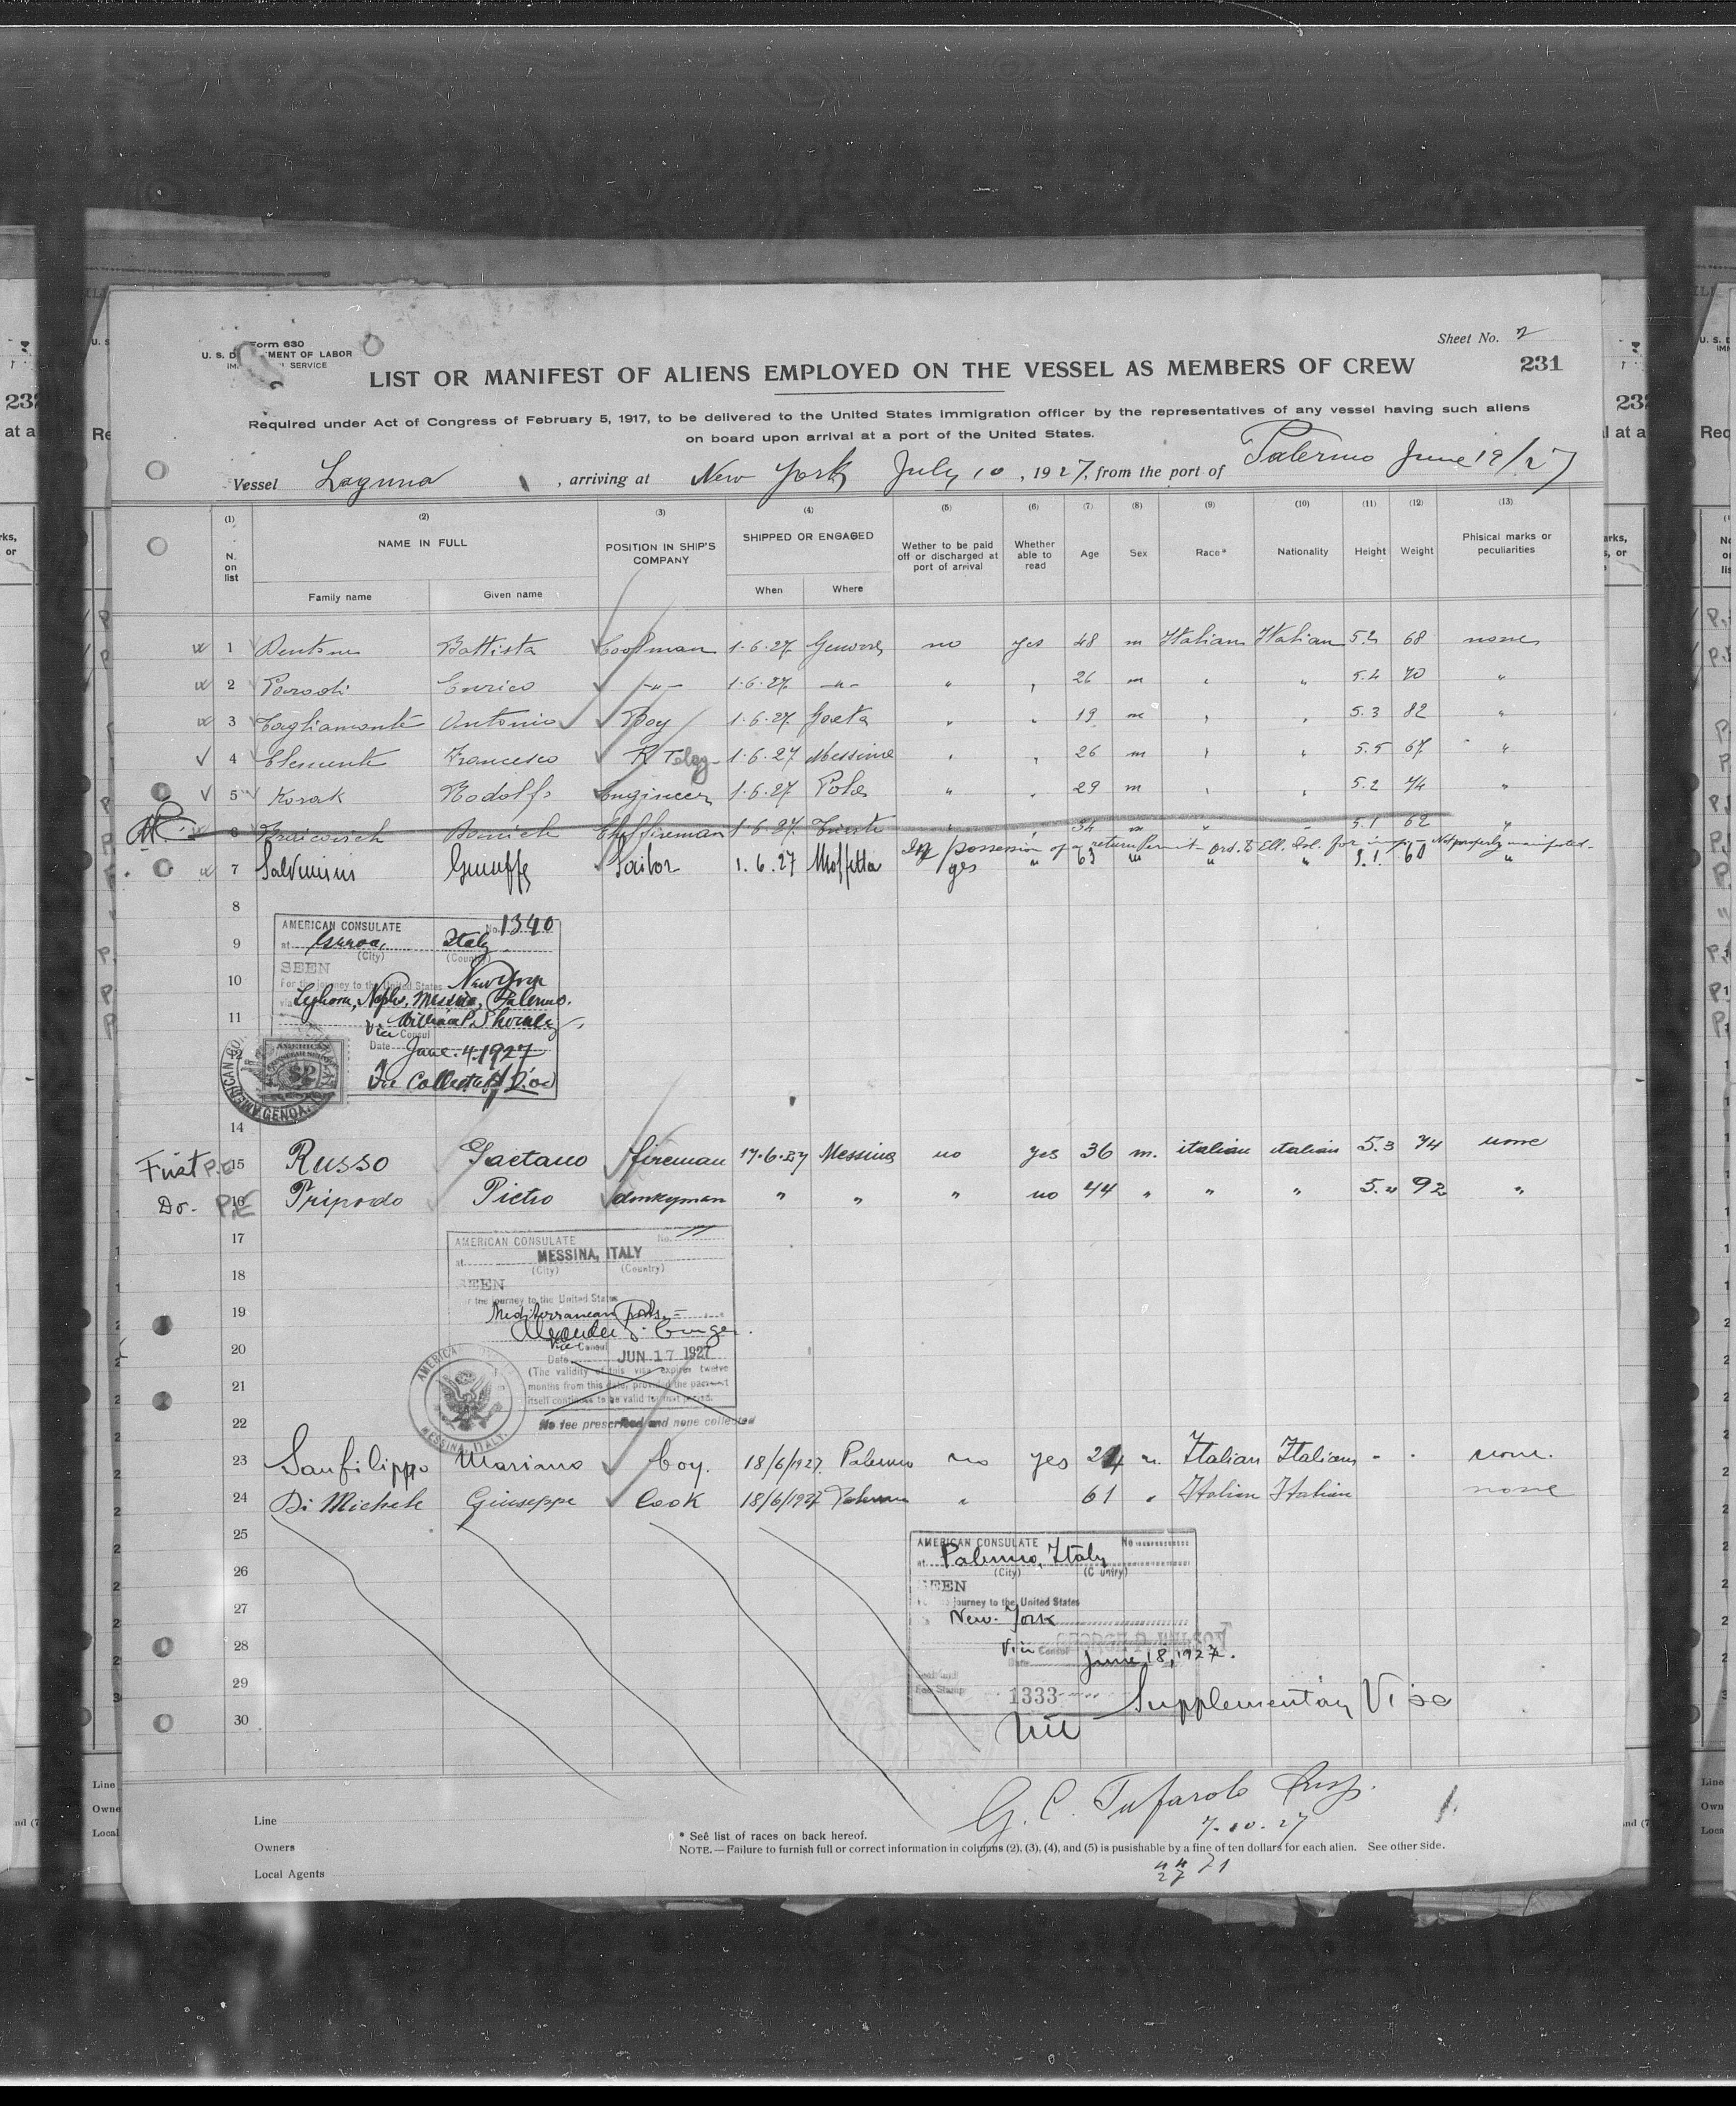 Sheet No. 2
Form 630
U. S. D MENT OF LABOR
SERVICE
LIST OR MANIFEST OF ALIENS EMPLOYED ON THE VESSEL AS MEMBERS OF CREW
231
Required under Act of Congress of February 5, 1917, to be delivered to the United States Immigration officer by the representatives of any vessel having such aliens
on board upon arrival at a port of the United States.
Vessel Laguna , arriving at New York July 10 , 1927, from the port of Palermo June 19/27
(1) (2) (3) (4) (5) (6) (7) (8) (9) (10) (11) (12) (13)
N. on list NAME IN FULL POSITION IN SHIP'S COMPANY SHIPPED OR ENGAGED Wether to be paid off or discharged at port of arrival Whether able to read Age Sex Race* Nationality Height Weight Phisical marks or peculiarities
Family name Given name When Where
1 Battista 1.6.27 Genova no yes 48 m Italian Italian 5.2 68 none
2 Parodi Enrico -"- 1.6.27 -"- " " 26 m " " 5.4 70 "
3 Tagliamonte Antonio Boy 1.6.27 Gaeta " " 19 m " " 5.3 82 "
4 Clemente Francesco R Teleg 1.6.27 Messina " " 26 m " " 5.5 67 "
5 Korak Rodolfo Engineer 1.6.27 Pola " " 29 m " " 5.2 74 "
6 fireman 1.6.27 Trieste " " 34 m " " 5.1 62 "
In possession of a return Permit - ord. to Ell. Isl. for - Not properly manifested -
7 Salvemini Sailor 1.6.27 Molfetta yes " 63 " " " 5.1 60 "
8
AMERICAN CONSULATE No. 1340
9
at Genoa, Italy
(City) (Country)
SEEN
10
For the journey to the United States New York
via Leghorn, Naples, Messina, Palermo.
11
Vice Consul
12
Date June 4. 1927
AMERICAN
$2
GENOA
14
First P.E 15 Russo Gaetano fireman 17.6.27 Messina no yes 36 m. italian italian 5.3 74 none
Do. P.E 16 Tripodo Pietro donkeyman " " " no 44 " " " 5." 92 "
17
AMERICAN CONSULATE No. 11
at MESSINA, ITALY
(City) (Country)
18
SEEN
or the journey to the United States
19
Mediterranean ports =
20
Vice Consul
Date JUN 17 1927
(The validity of this visa expires twelve
21
months from this date, provided the passport
itself continues to be valid for that period.
22
No fee prescribed and none collected
AMERICAN
MESSINA, ITALY.
23 Sanfilippo Mariano boy. 18/6/1927 Palermo no yes 24 m. Italian Italian - - none.
24 Di Michele Giuseppe Cook 18/6/1927 Palermo " 61 " Italian Italian none
25
AMERICAN CONSULATE No
at Palermo, Italy
26
(City) (Country)
SEEN
journey to the United States
27
New-York
28
Vice Consul
Date June 18, 1927.
29
Fee Stamp 1333
Supplementary Visa
30
G. C. Tufarolo Insp.
7-10-27
Line
Owners
Local Agents
* See list of races on back hereof.
NOTE. — Failure to furnish full or correct information in columns (2), (3), (4), and (5) is pusishable by a fine of ten dollars for each alien. See other side.